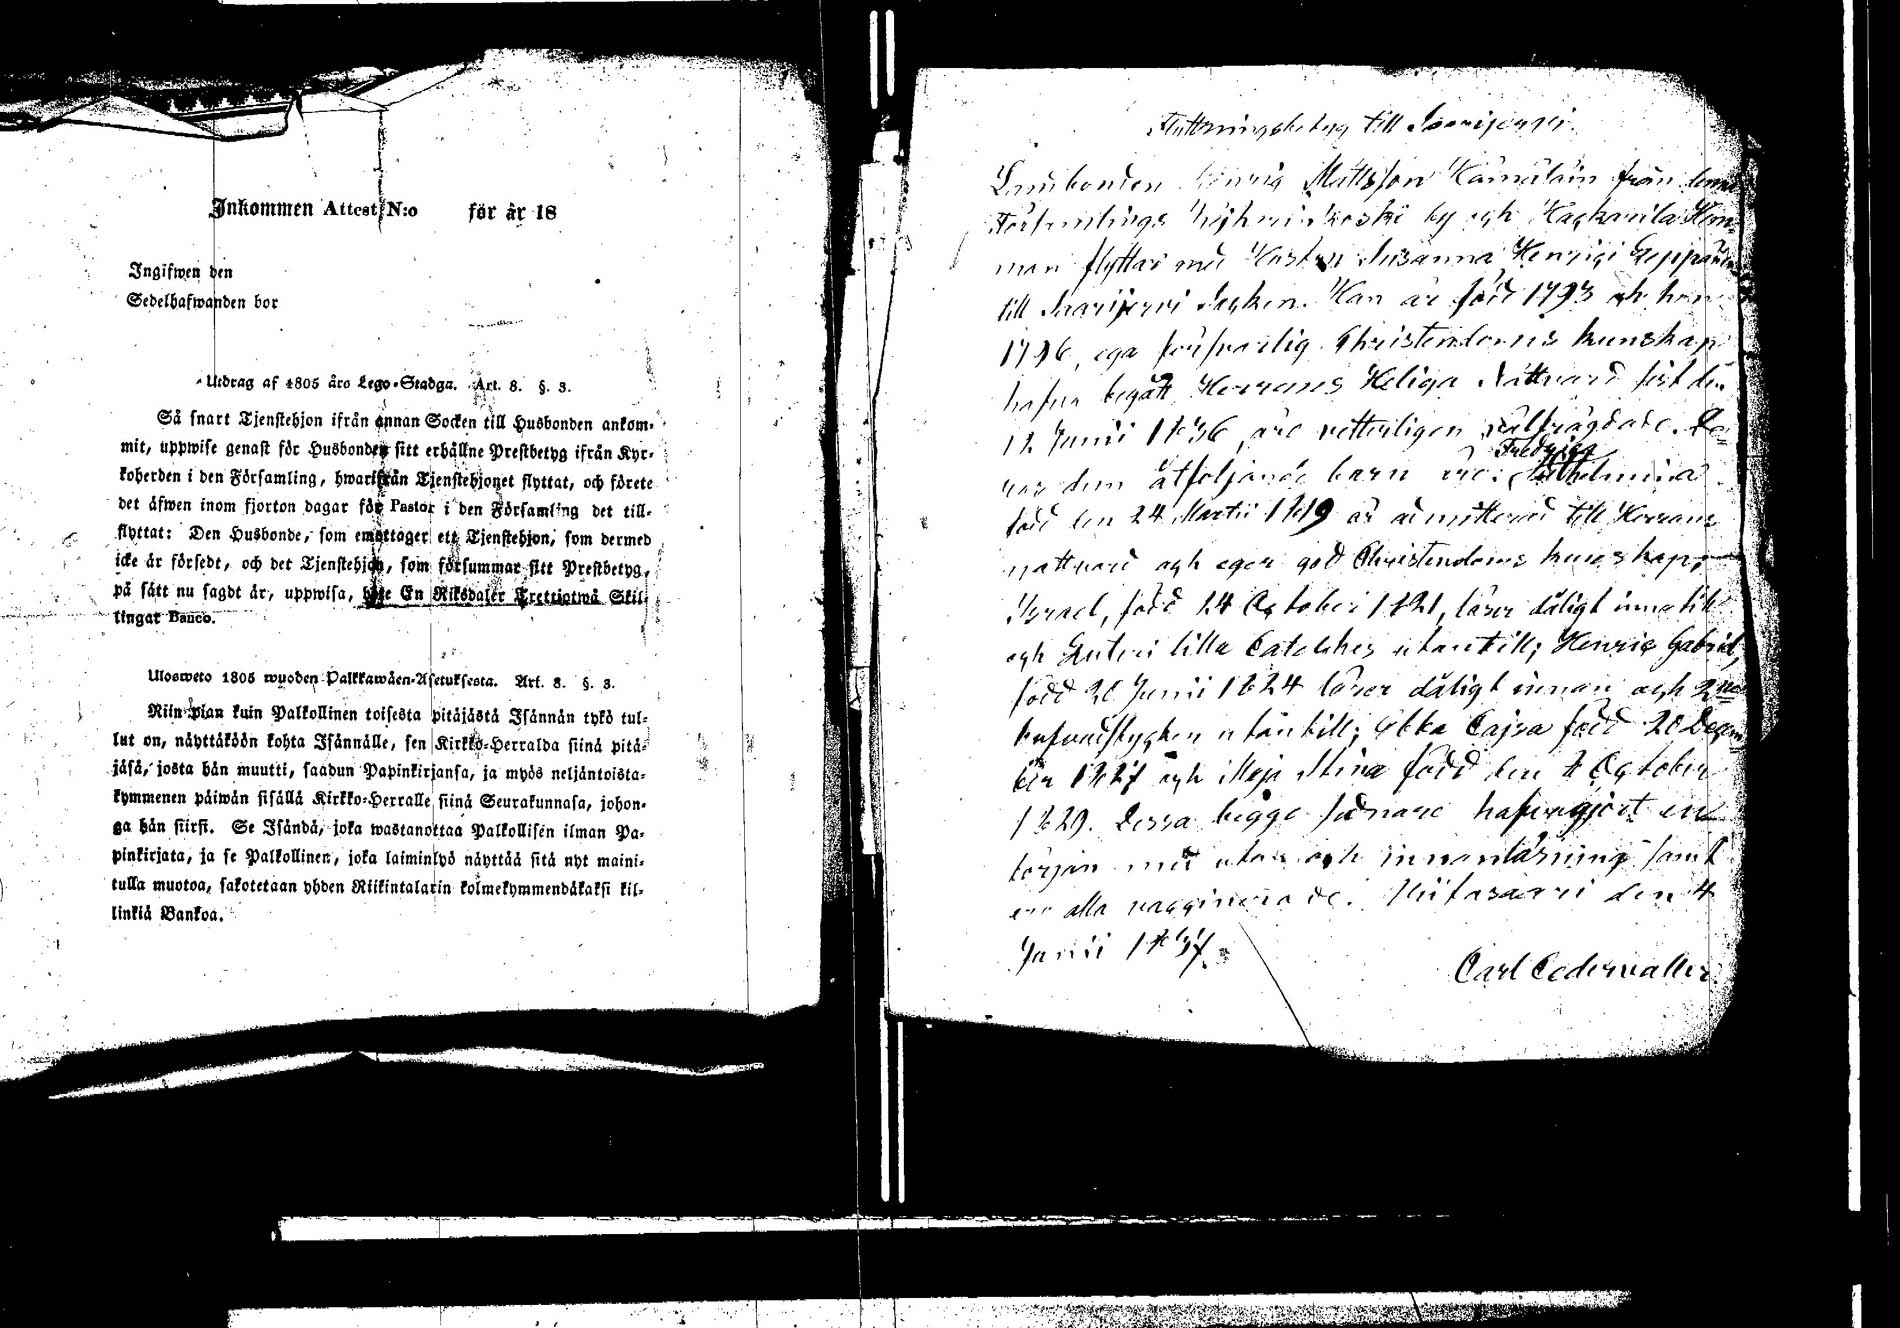 Inkommen Attest N:o för år 18
Ingifwen den
Sedelhafwanden bor
Utdrag af 1805 års Lego-Stadga. Art. 8. §. 3.
Så snart Tjenstehjon ifrån annan Socken till Husbonden ankom-
mit, uppwise genast för Husbonden sitt erhållne Prestbetyg ifrån Kyr-
koherden i den Församling, hwarifrån Tjenstehjonet flyttat, och förete
det äfwen inom fjorton dagar för Pastor i den Församling det till-
flyttat: Den Husbonde, som emottager ett Tjenstehjon, som dermed
icke är försedt, och det Tjenstehjon, som försummar sitt Prestbetyg,
på sätt nu sagdt är, uppwisa, böte En Riksdaler Trettiotwå Skil-
lingar Banco.
Ulosweto 1805 wuoden Palkkawäen-Asetuksesta. Art. 8. §. 3.
Niin pian kuin Palkollinen toisesta pitäjästä Isännän tykö tul-
lut on, näyttäköön kohta Isännälle, sen Kirkko-Herralda siinä pitä-
jäsä, josta hän muutti, saadun Papinkirjansa, ja myös neljäntoista-
kymmenen päiwän sisällä Kirkko-Herralle siinä Seurakunnasa, johon-
ga hän siirsi. Se Isändä, joka wastanottaa Palkollisen ilman Pa-
pinkirjata, ja se Palkollinen, joka laiminlyö näyttää sitä nyt maini-
tulla muotoa, sakotetaan yhden Riikintalarin kolmekymmendäkaksi kil-
linkiä Bankoa.
Flyttningsbetyg till Saarijerfvi
Landbonden Henric Mattsson Kämäläin från
Församlings by och Hackarila Hem-
man flyttar med Hustru Susanna Henrici Leppänen
till Saarijervi Socken. Han är född 1793 och hon
1796, ega försvarlig Christendoms kunskap
hafva begått Herrans Heliga Nattvard sist den
12 Junii 1836, äro vetterligen välfrägdade. De-
ras dem åtföljande barn äro: Fredrica Wilhelmina
född den 24 Martii 1819 är admitterad till Herrans
nattvard och eger god Christendoms kunskap,
Israel, född 14 October 1821, läser dåligt innantill
och Luteri lilla Catechis utantill; Henric Gabriel,
född 20 Junii 1824 läser dåligt innan och 2ne
hufvudstycken utantill; Ebba Cajsa född 20 Decem-
ber 1827 och Maja Stina född den 8 October
1829. Dessa begge sednare hafva gjort en
början med utan och innanläsning samt
ero alla vaccinerade. Kiifasaari den 4
Junii 1837.
Carl Cederwaller